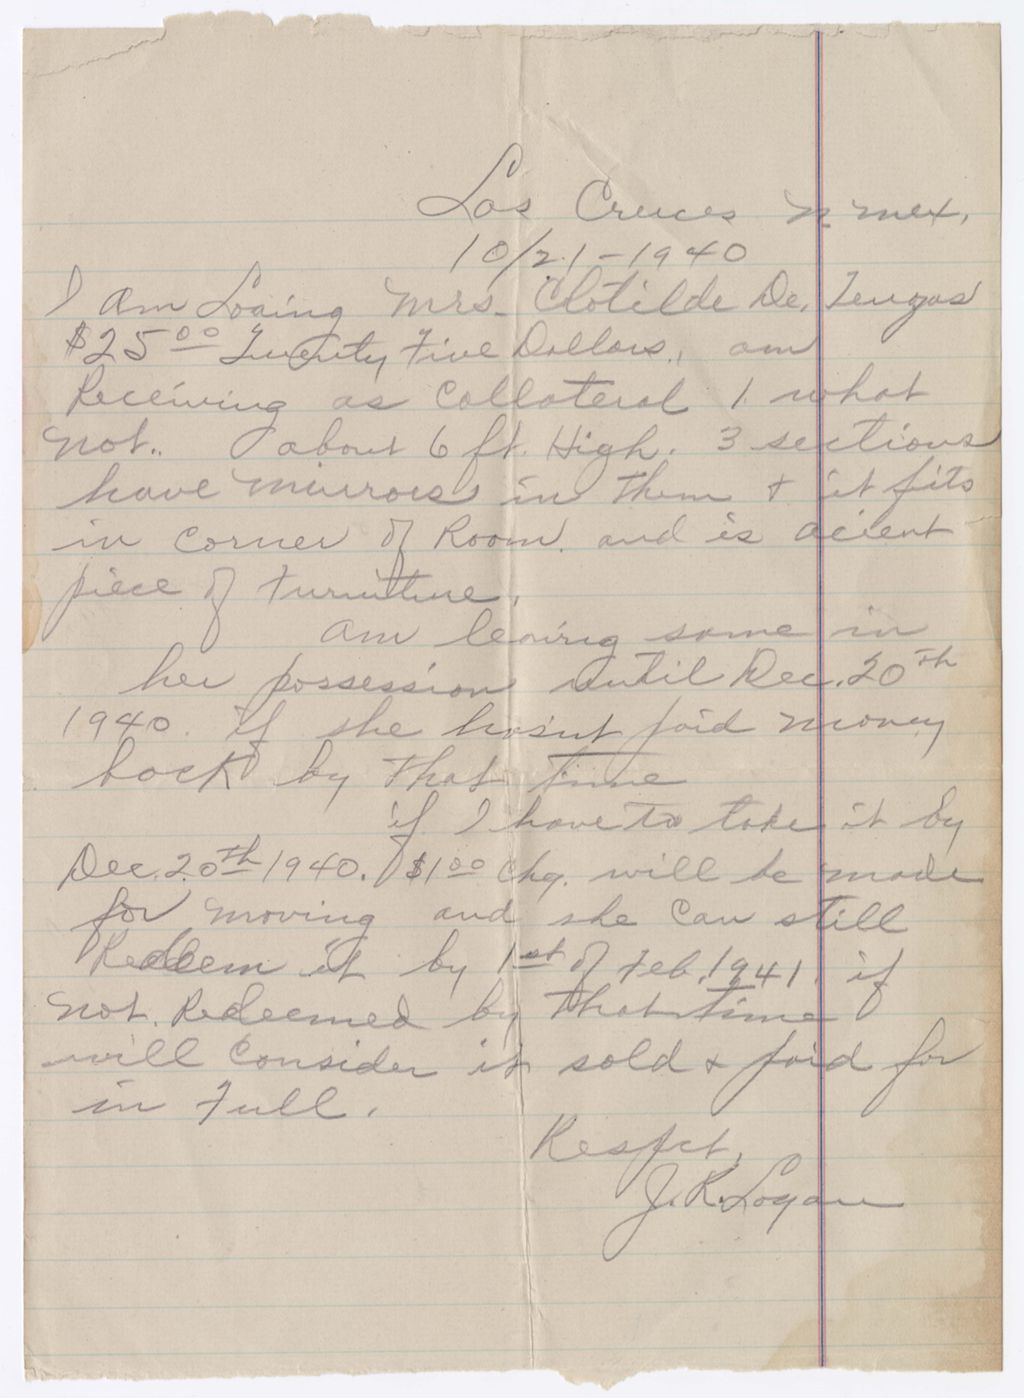 Las Cruces N Mex.
10/21-1940
I Am Loaing Mrs. Clotilde De,
$25.00 Twenty Five Dollars, am
Receiving as Collateral 1 what
not.. about 6 ft. High. 3 sections
have mirrors in them & it fits
in corner of Room. and is acient
piece of Furniture.
Am leaving same in
her possession until Dec. 20th
1940. if she hasnt paid money
back by that time
if I have to take it by
Dec. 20th 1940. $1.00 Chg. will be made
for moving and she can still
Redeem it by 1st of Feb. 1941. if
not. Redeemed by that time
will consider it sold & paid for
in Full.
Respct,
J. R. Logan